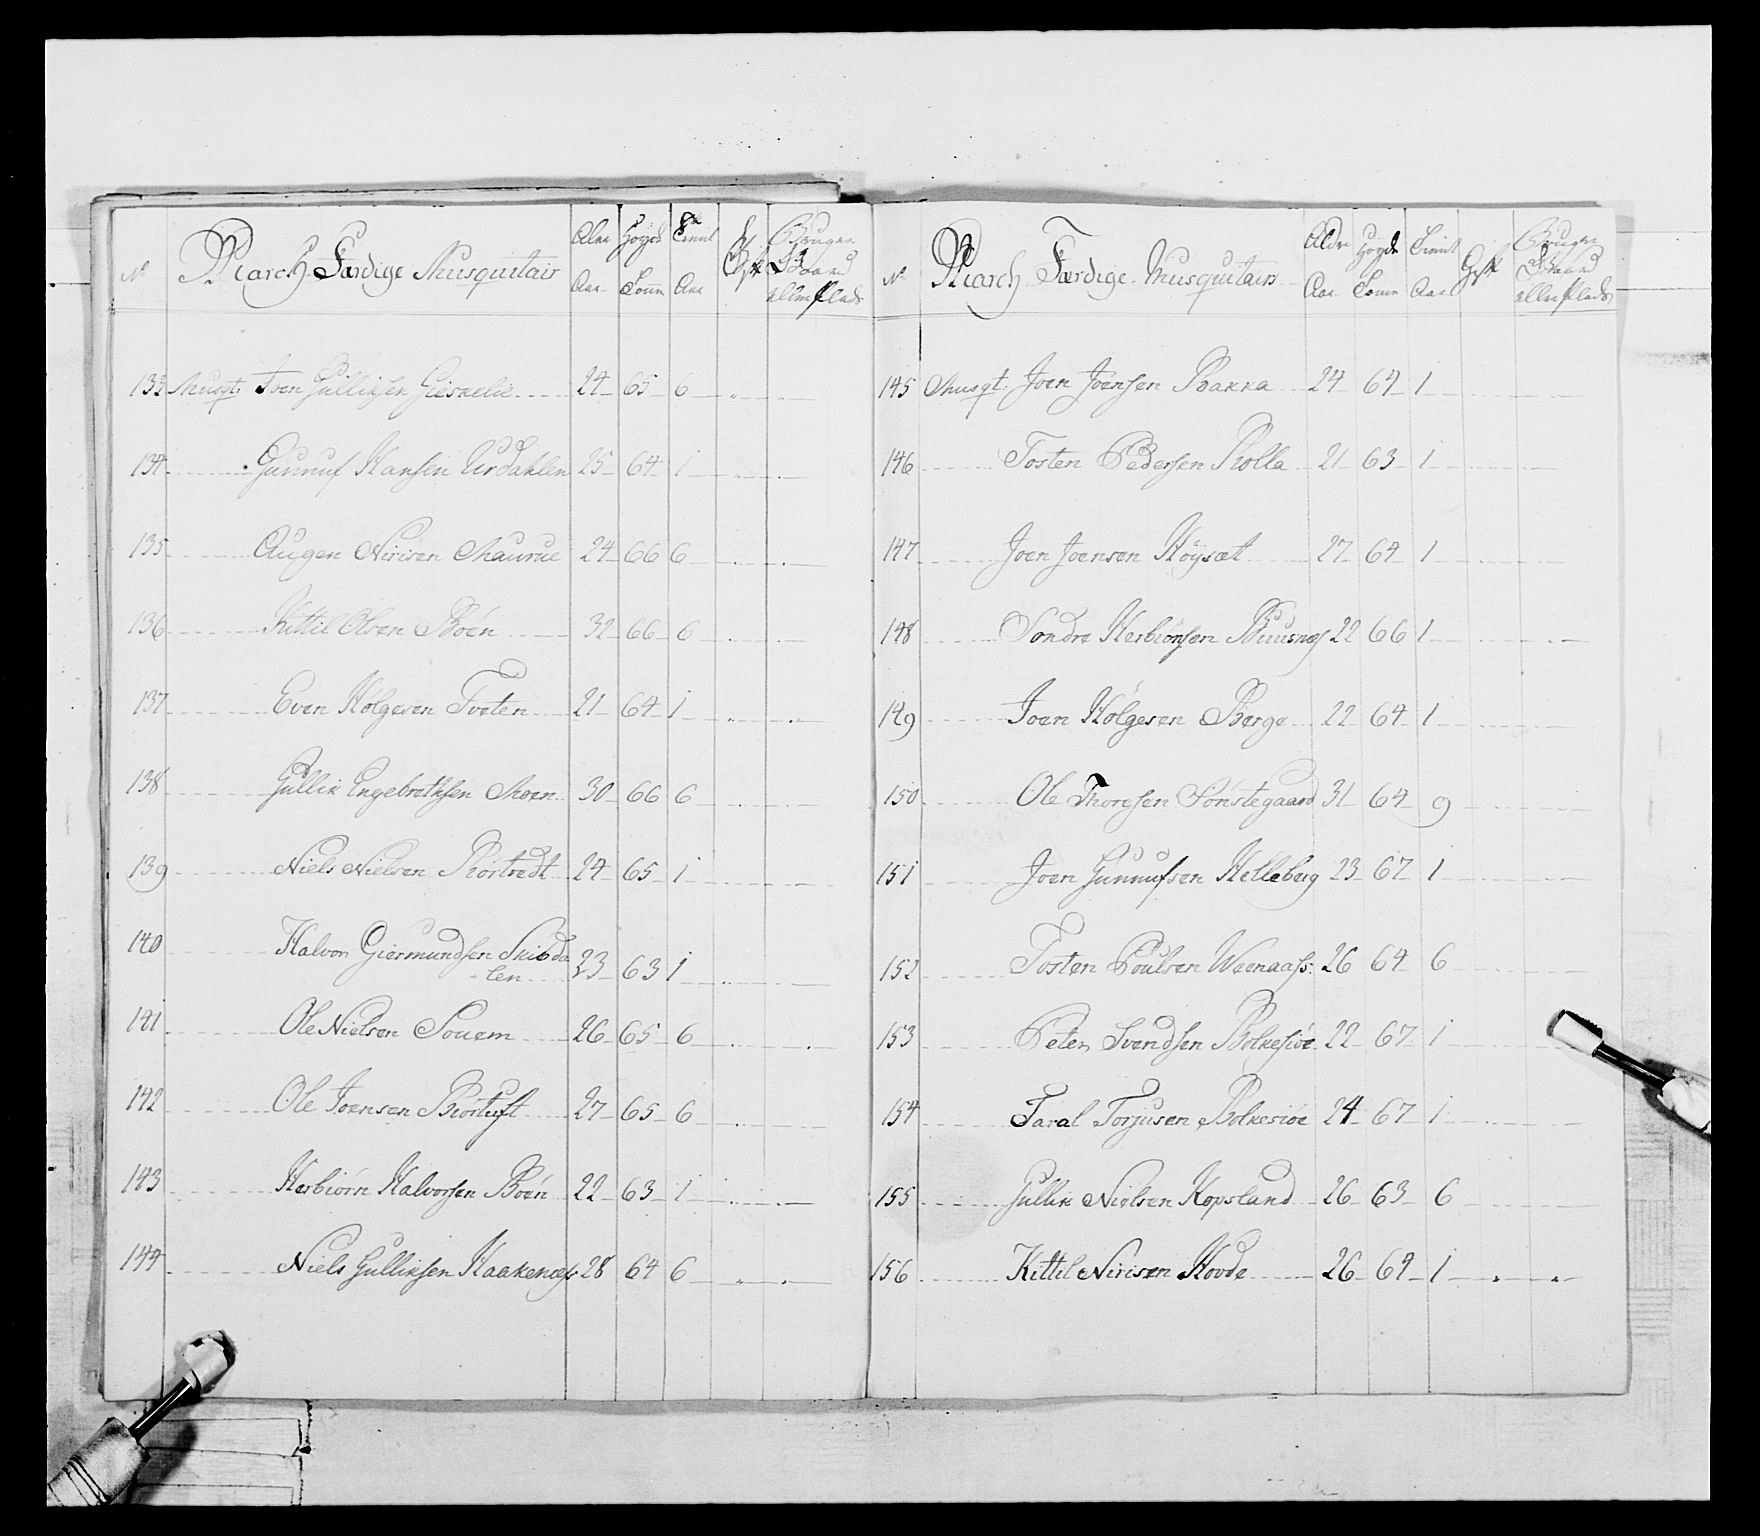 No March Færdige Musquitair Aar Høyde Tomm Tient Aar Gift Bruger Gaard eller Plads
133 Musqt: Joen Gulliksen 24 65 6
134 Gunnuf Hansen Urdahlen 25 64 1
135 Augen Nirisen 24 66 6
136 Kittil Olsen Boen 32 66 6
137 Even Hølgesen Tveten 21 64 1
138 Gullik Engebrethsen Moen 30 66 6
139 Niels Nielsen 24 65 1
140 Halvor Giermundsen Skibda
len 23 63 1
141 Ole Nielsen Souem 26 65 6
142 Ole Joensen 27 65 6
143 Herbiørn Halvorsen Boen 22 63 1
144 Niels Gulliksen Haakenæs 28 64 6
No March Færdige Musquitair Aldr Aar Høyde Tomm Tient Aar Gift Bruger Gaard eller Plads
145 Musqt: Joen Joensen Bakka 24 64 1
146 Tosten Pedersen Rolla 21 63 1
147 Joen Joensen Høysæt 27 64 1
148 Sondre Herbiønsen Buusnes 22 66 1
149 Joen Hølgesen Berge 22 64 1
150 Ole Thoresen Sønstegaard 31 64 9
151 Joen Gunnufsen Helleberg 23 67 1
152 Tosten Poulsen 26 64 6
153 Peter Svendsen Bolkesiøe 22 67 1
154 Taral Torjusen Bolkesiøe 24 67 1
155 Gullik Nielsen Kopsland 26 63 6
156 Kittil Nirisen Hovde 26 64 1